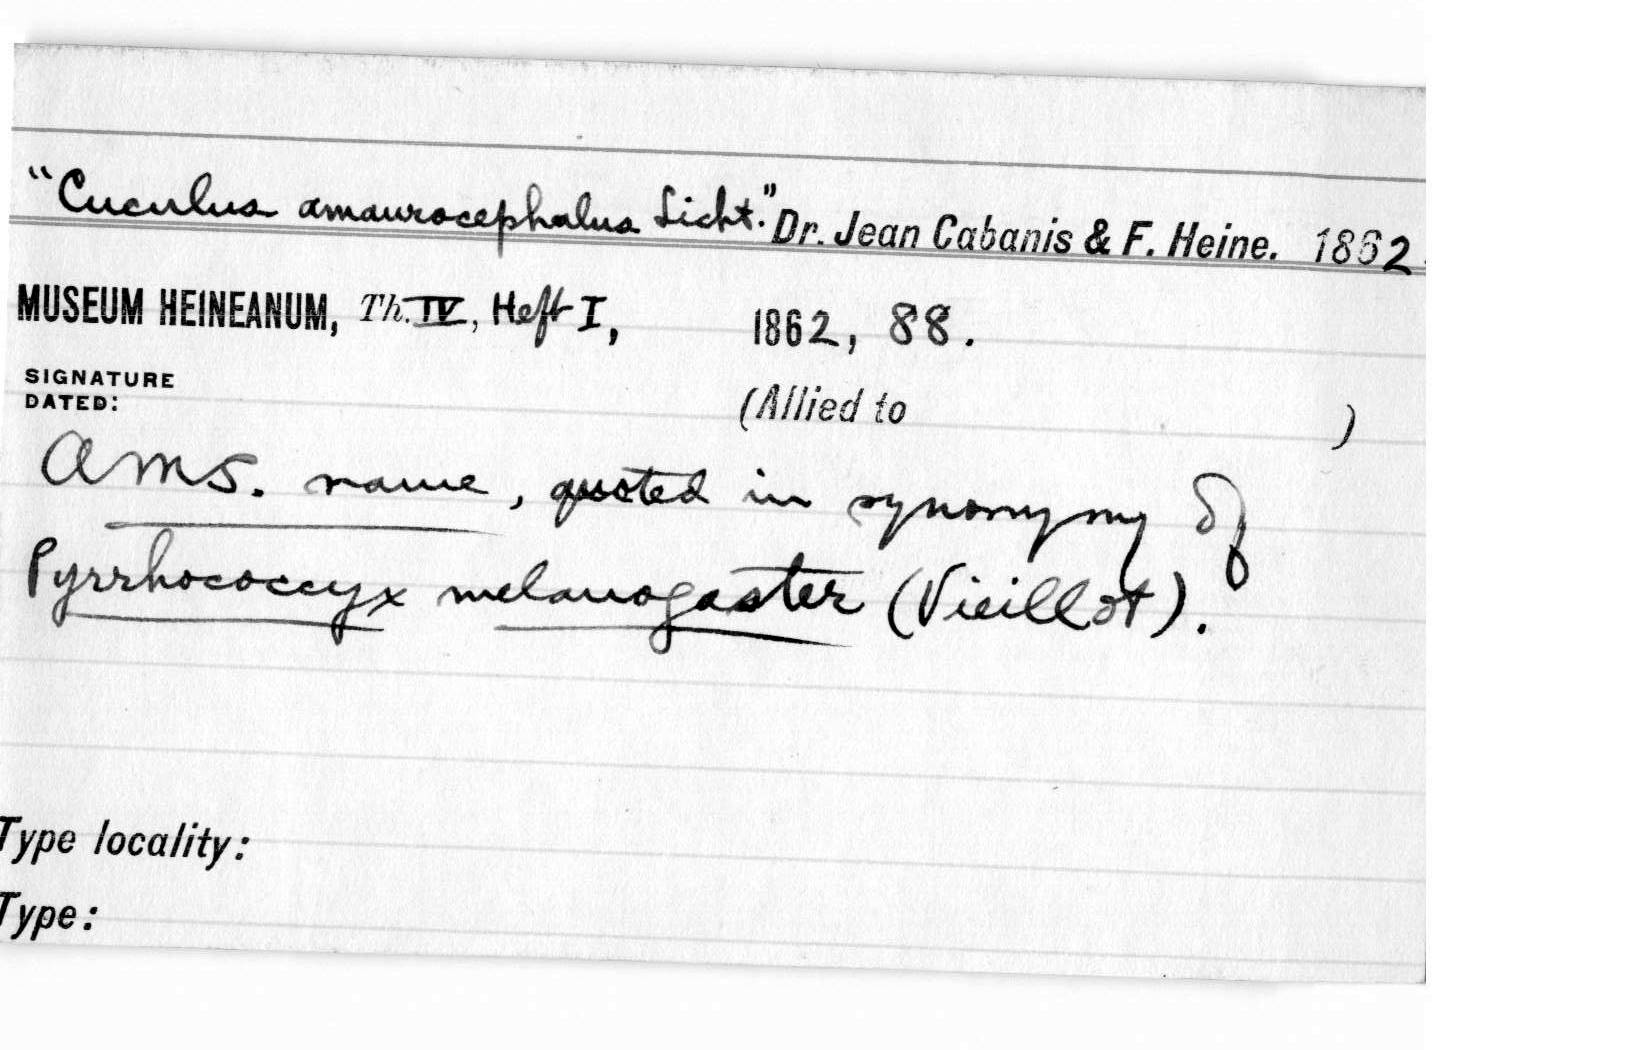 "Cuculus amaurocephalus Licht." Dr. Jean Cabanis & F. Heine. 1862.
MUSEUM HEINEANUM, Th. IV, Heft I, 1862, 88.
SIGNATURE
DATED:
(Allied to )
A MS. name, quoted in synonymy of
Pyrrhococcyx melanogaster (Vieillot).
Type locality:
Type: